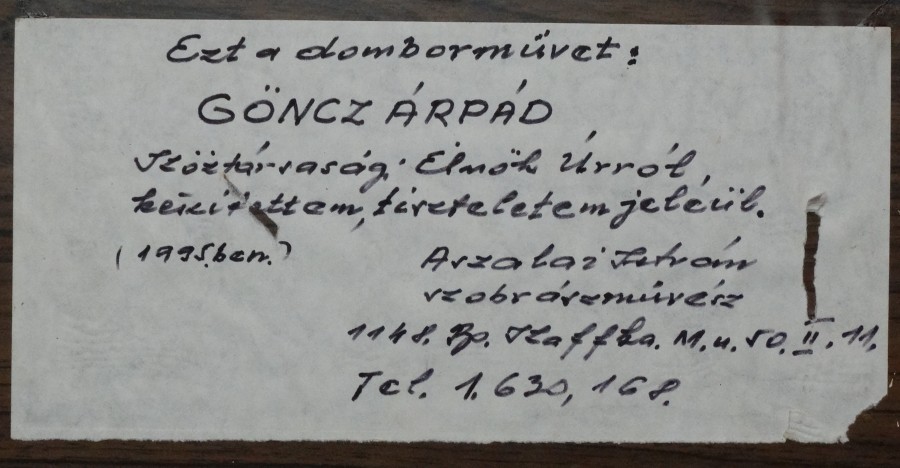 Ezt a domborművet:
GÖNCZ ÁRPÁD
Köztársasági Elnök Úrról,
készítettem, tiszteletem jeléül.
(1995.ben.)
Aszalai István
szobrászművész
1148. Bp. Kaffka. M. u. 50. II. 11.
Tel. 1.630,168.